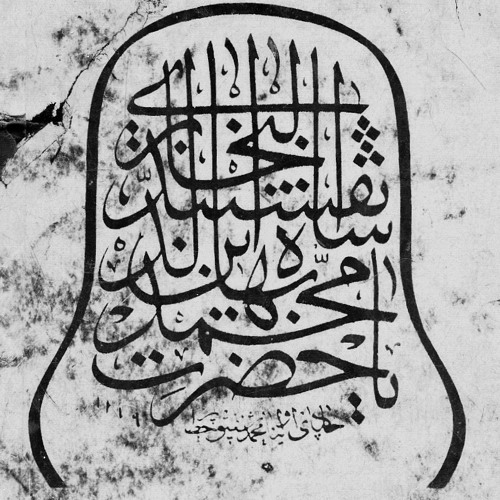 يا حضرت
محمد بهاء الدين
شاه نقشبند
البخارى